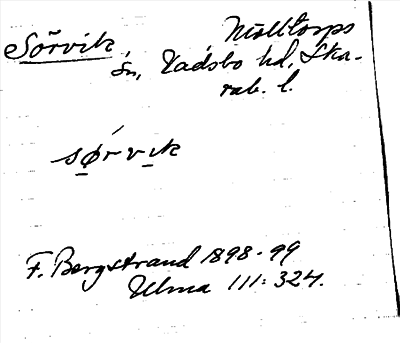 Sörvik, Mölltorps
sn, Vadsbo hd, Ska-
rab. l.
sørvik
F. Bergstrand 1898-99
Ulma 111:324.